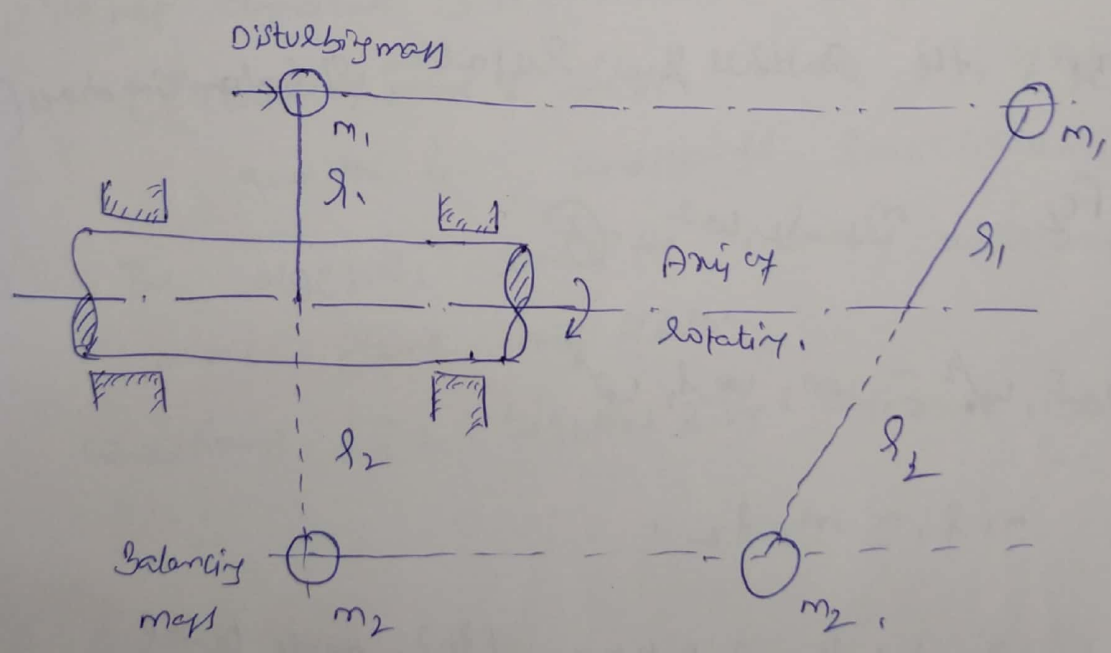 Disturbing mass
m₁
r₁
m₁
r₁
Axis of
rotation.
r₂
r₂
Balancing
mass
m₂
m₂.